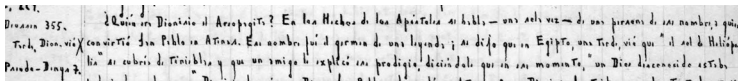 Dionisio 355.
Tarde, Dion. vió
Pseudo-Dinys 7.
¿Quién era Dionisio el Areopagita? En los Hechos de los Apóstoles se habla — una sola vez — de una persona de ese nombre, a quien
convirtió San Pablo en Atenas. Ese nombre fué el germen de una leyenda; se dijo que en Egipto, una Tarde, vió que "el sol de Heliópo-
lis" se cubría de Tinieblas y que un amigo le explicó ese prodigio, diciéndole que en ese momento, un Dios desconocido estaba